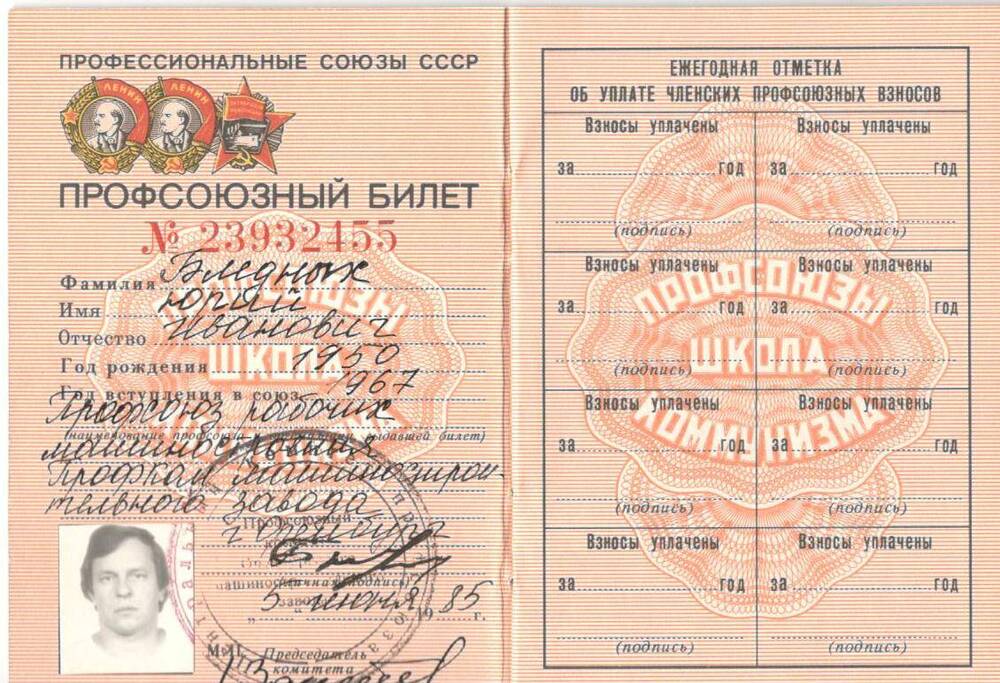 ПРОФЕССИОНАЛЬНЫЕ СОЮЗЫ СССР
ЛЕНИН ЛЕНИН
ПРОФСОЮЗНЫЙ БИЛЕТ
№ 23932455
Фамилия Бледных
Имя Юрий
Отчество Иванович
Год рождения 1950
Год вступления в союз 1967
Профсоюз рабочих
(наименование профсоюза и организации выдавшей билет)
машиностроения
Профком машинострои-
тельного завода
г Оренбурга
Профсоюзный
(личная подпись)
завода
„ 5 “ июня 19 85 г.
М.П. Председатель
комитета
ПРОФСОЮЗЫ
ШКОЛА
ЕЖЕГОДНАЯ ОТМЕТКА
ОБ УПЛАТЕ ЧЛЕНСКИХ ПРОФСОЮЗНЫХ ВЗНОСОВ
Взносы уплачены Взносы уплачены
за год за год
(подпись) (подпись)
Взносы уплачены Взносы уплачены
за год за год
(подпись) (подпись)
Взносы уплачены Взносы уплачены
за год за год
(подпись) (подпись)
Взносы уплачены Взносы уплачены
за год за год
(подпись) (подпись)
ПРОФСОЮЗЫ
ШКОЛА
КОММУНИЗМА